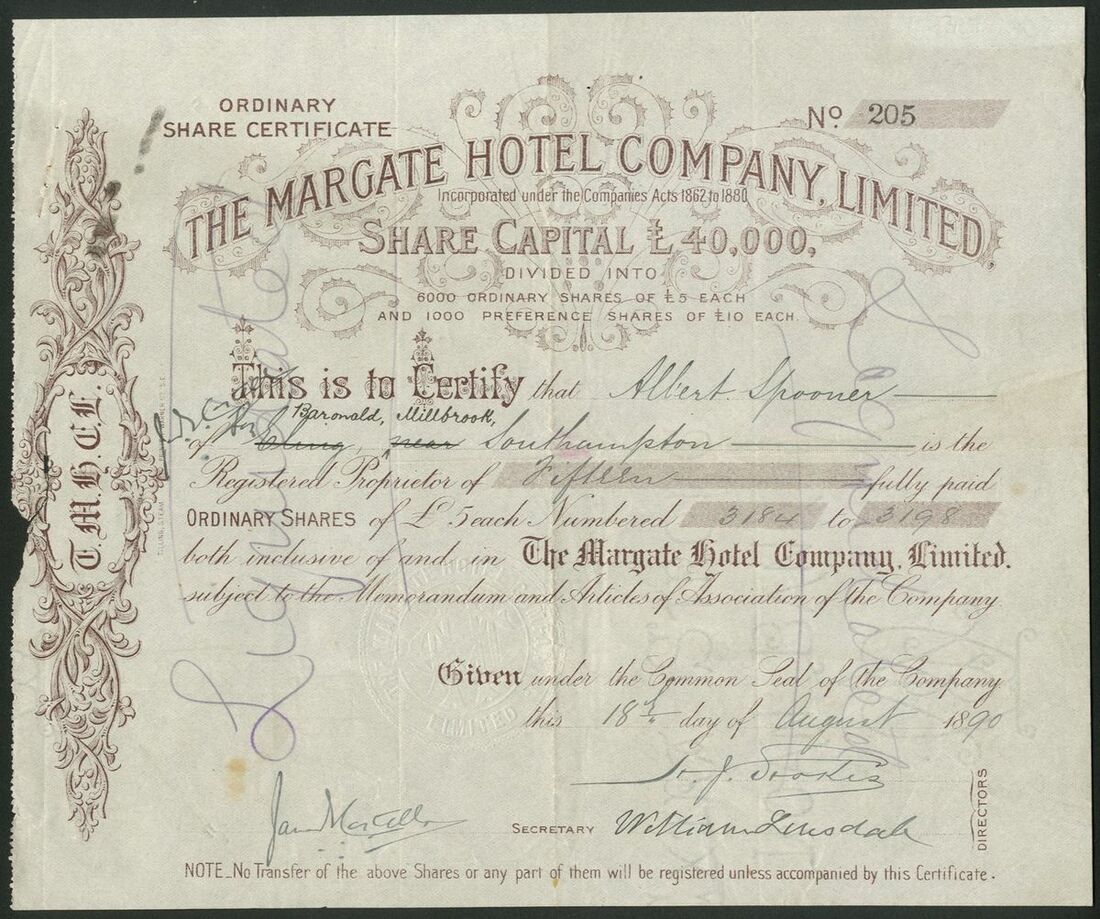 ORDINARY
SHARE CERTIFICATE
No 205
THE MARGATE HOTEL COMPANY, LIMITED,
Incorporated under the Companies Acts 1862 to 1880
SHARE CAPITAL £40,000,
DIVIDED INTO
6000 ORDINARY SHARES OF £5 EACH
AND 1000 PREFERENCE SHARES OF £10 EACH.
T.M.H.C.L.
This is to Certify that Albert Spooner
Baronald, Millbrook,
of near Southampton is the
Registered Proprietor of Fifteen fully paid
ORDINARY SHARES of £5 each Numbered 3184 to 3198
both inclusive of and in The Margate Hotel Company, Limited.
subject to the Memorandum and Articles of Association of the Company
Given under the Common Seal of the Company
this 18th day of August 1890
SECRETARY William
DIRECTORS
NOTE_No Transfer of the above Shares or any part of them will be registered unless accompanied by this Certificate.
LIMITED